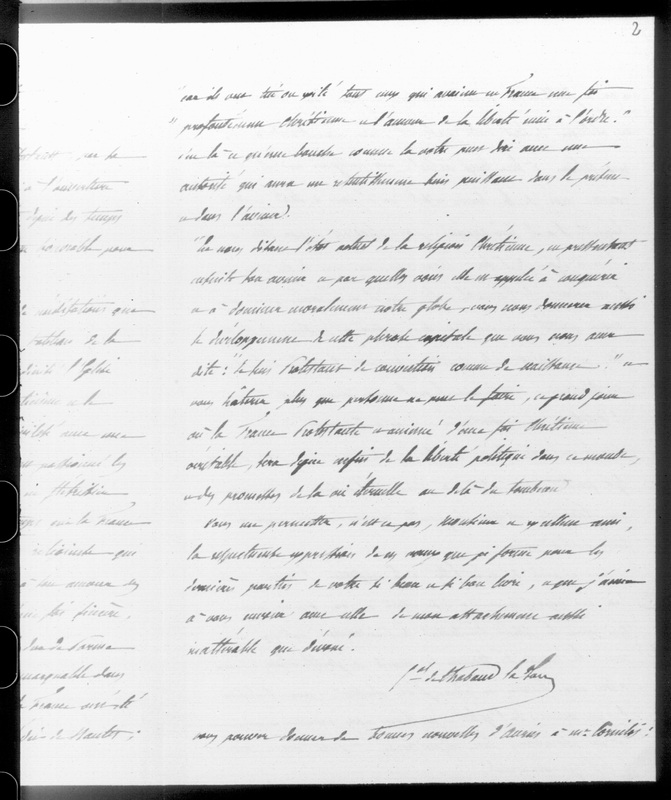 2
car ils ont tué ou exilé tous ceux qui avaient en France une foi
"profondément Chrétienne et l'amour de la liberté unie à l'ordre."
C'est là ce qu'une bouche comme la votre peut dire avec une
autorité qui aura un retentissement puissance dans le présent
et dans l'avenir.
En nous disant l'état actuel de la religion Chrétienne, en pressentant
ensuite son avenir et par quelles voies elle est appelée à conquérir
et à dominer moralement notre globe, vous nous donnerez aussi
le développement de cette phrase capitale que vous nous avez
dite: "Je suis Protestant de conviction comme de naissance." et
vous hâterez, plus que personne ne peut le faire, ce grand jour
où la France Protestante ranimée d'une foi Chrétienne
véritable, sera digne enfin de la liberté politique dans ce monde,
et des promesses de la vie éternelle au delà du tombeau
Vous me permettez, n'est ce pas, Monsieur et excellent ami,
la respectueuse expression de ces voeux que je forme pour les
dernières parties de votre si beau et si bon livre, et que j'aime
à vous envoyer avec celle de mon attachement aussi
inaltérable que dévoué.
de Chabaud la Tour
vous pouvez donner de bonnes nouvelles d' à Mr Cornélis:
par la
à l'ouverture
depuis des temps
honorable pour
méditations que
de la
l'Eglise
et le
avec une
passionné les
que la France
qui
à son amour des
foi sincère,
duc de Parme
remarquable dans
la France
de Nantes;